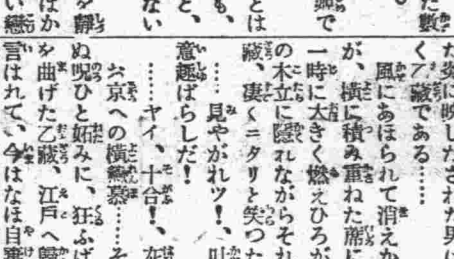 た數
で
とは
も、
と、
ない
を靜
はか
い戀
た炎に映しだされた男は
く乙藏である……
風にあほられて消えか
が、横に積み重ねた蓆に
一時に大きく燃えひろが
の木立に隱れながらそれ
藏、凄くニタリと笑つた
……見やがれッ！、叫
意趣ばらしだ！
……ヤイ、十合！、在
お京への横戀慕……そ
ぬ呪ひと妬みに、狂ふば
を曲げた乙藏、江戸へ歸
言はれて、今はなほ自棄